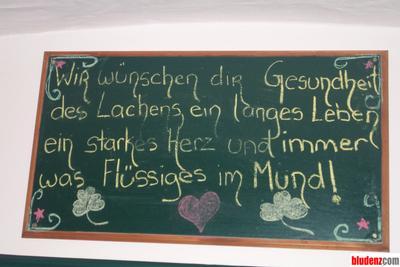 Wir wünschen dir Gesundheit
des Lachens, ein langes Leben
ein starkes Herz und immer
was Flüssiges im Mund!
bludenzcom